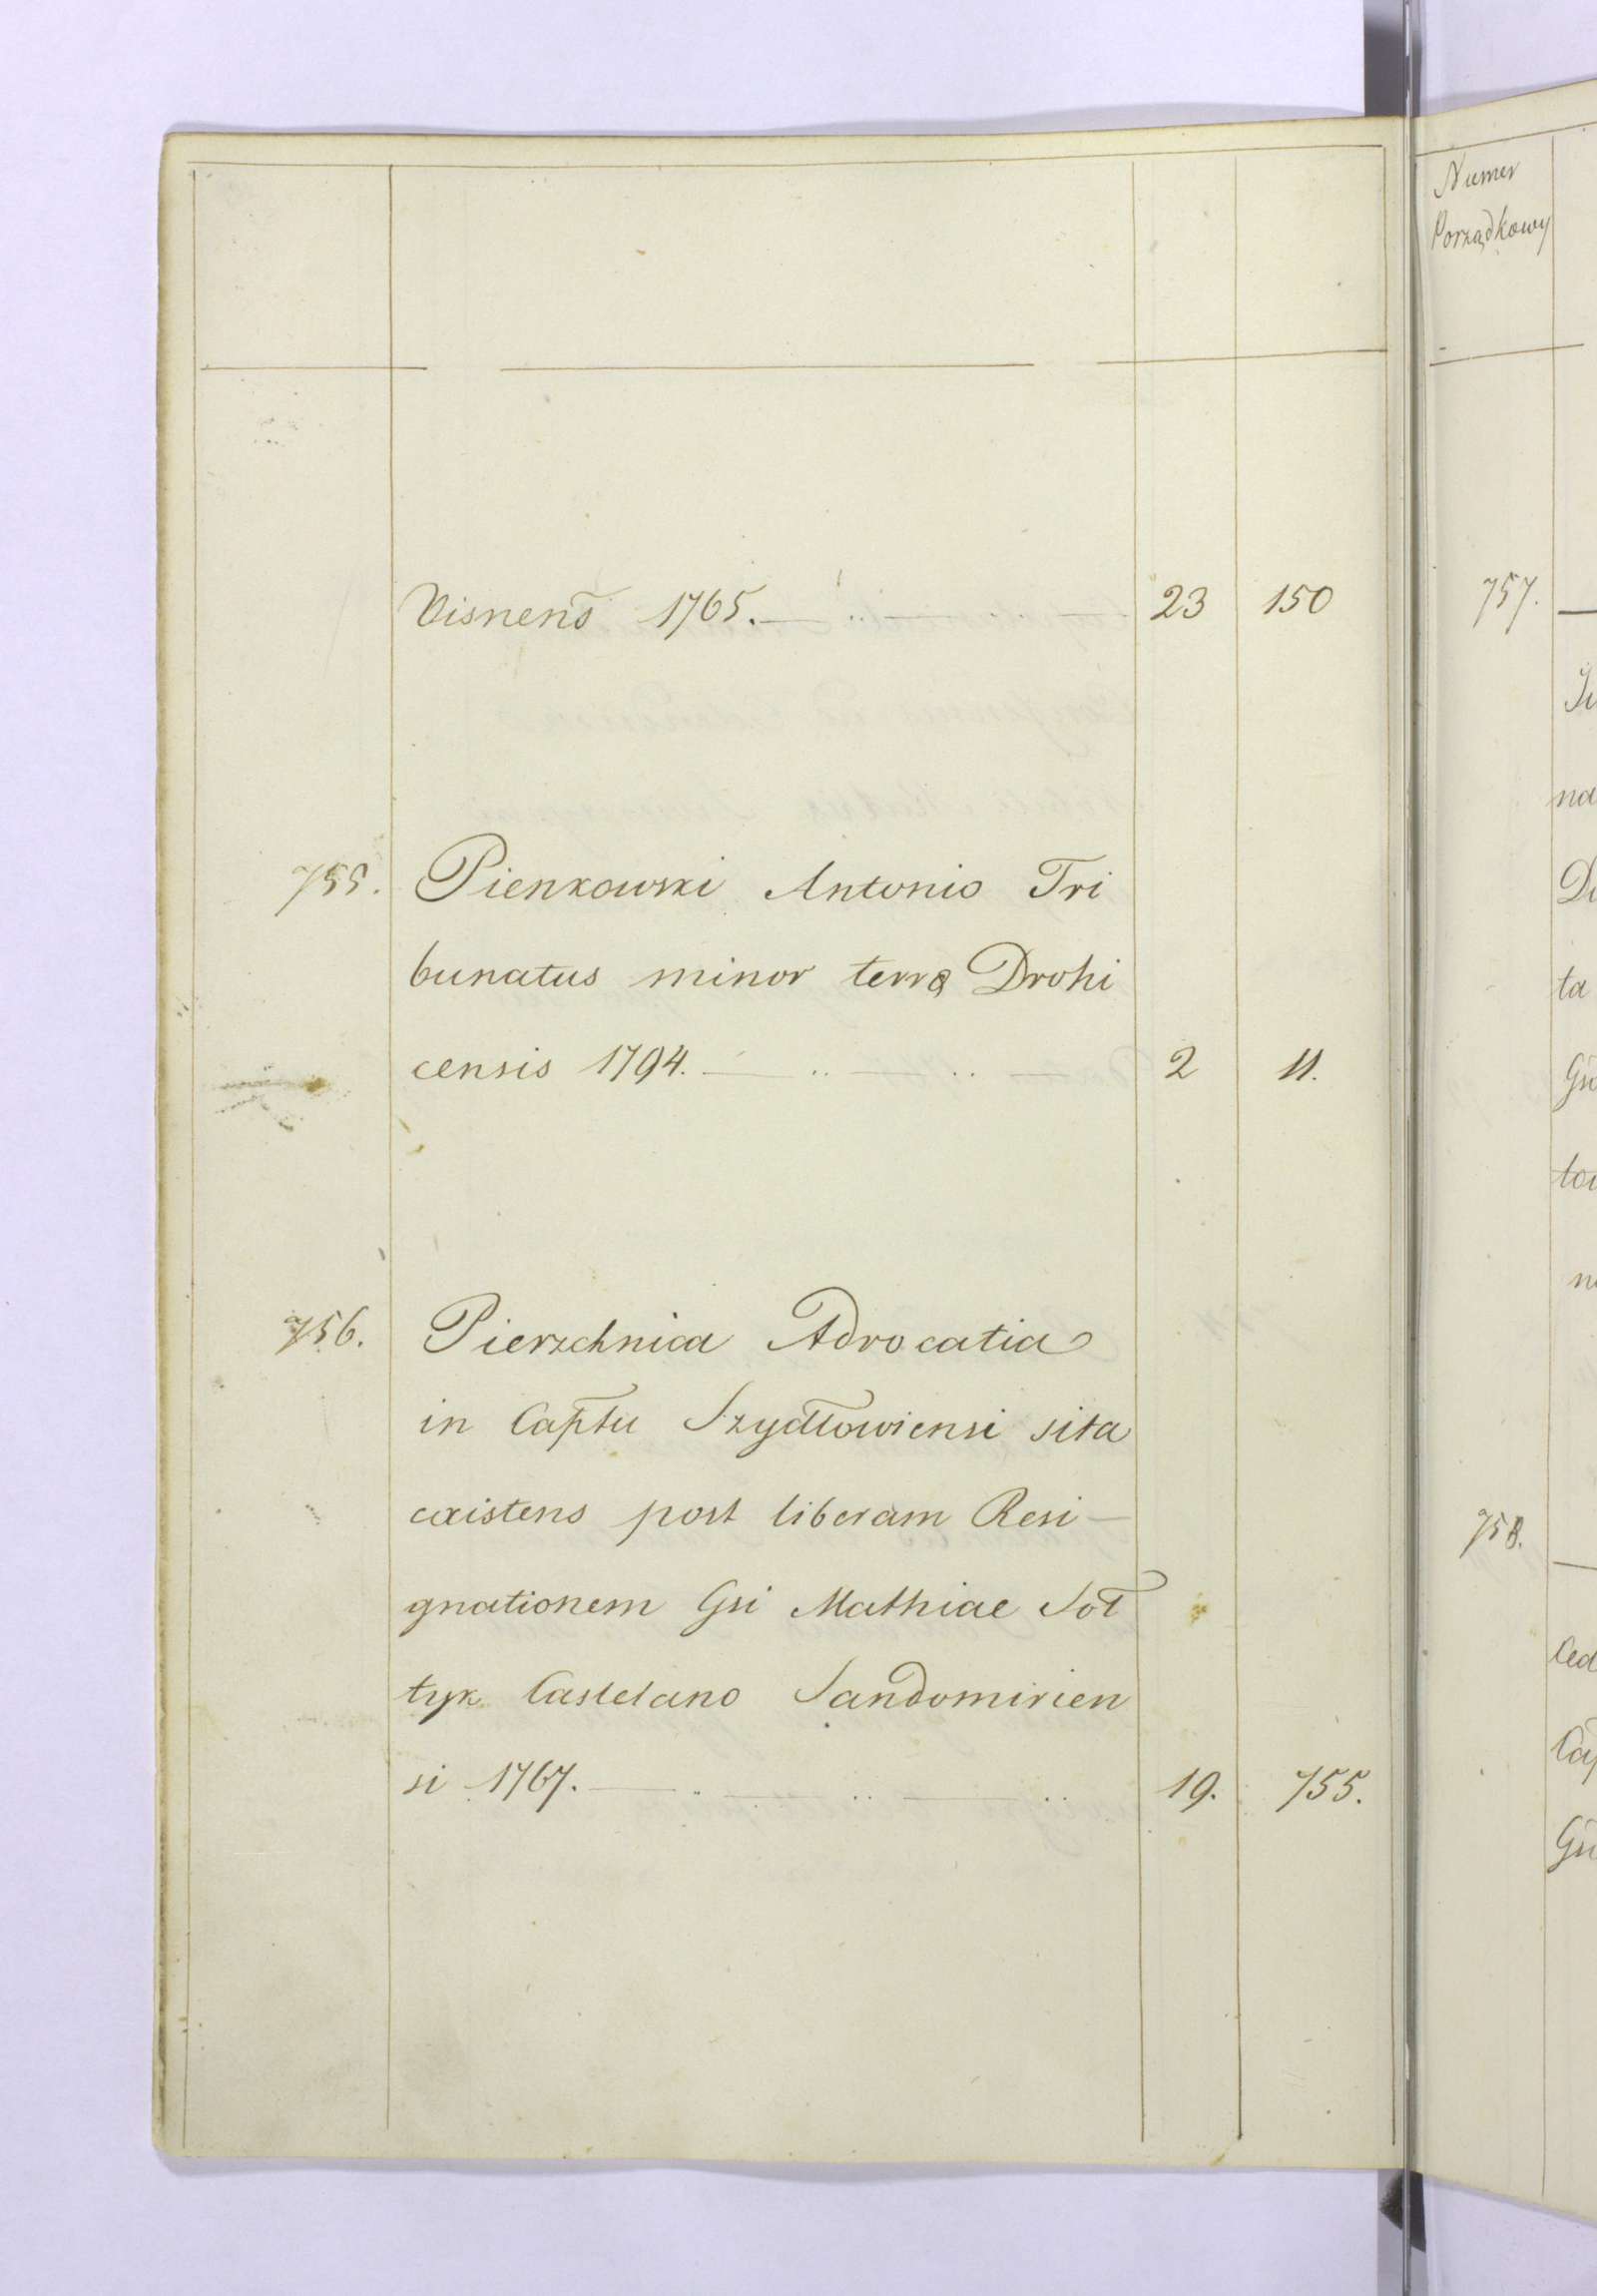 Visnens̄ 1765. 23 150
755. Pienkowski Antonio Tri
bunatus minor terræ Drohi
censis 1794. 2 11.
756. Pierzchnica Advocatia
in Cap̄tu Szydłowiensi sita
existens post liberam Resi-
gnationem Gsi Mathiae Soł
tyk Castelano Sandomirien
si 1767. 19. 755.
Numer
Porządkowy
757.
na
ta
758.